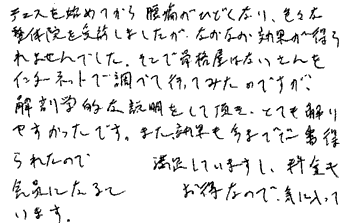 テニスを始めてから腰痛がひどくなり、色々な
整体院を受診しましたが、なかなか効果が得ら
れませんでした。そこで骨格屋はないさんを
インターネットで調べて行ってみたのですが、
解剖学的な説明をして頂き、とても解り
やすかったです。また、効果も今までで一番得
られたので 満足していますし、料金も
会員になると お得なので、気に入って
います。